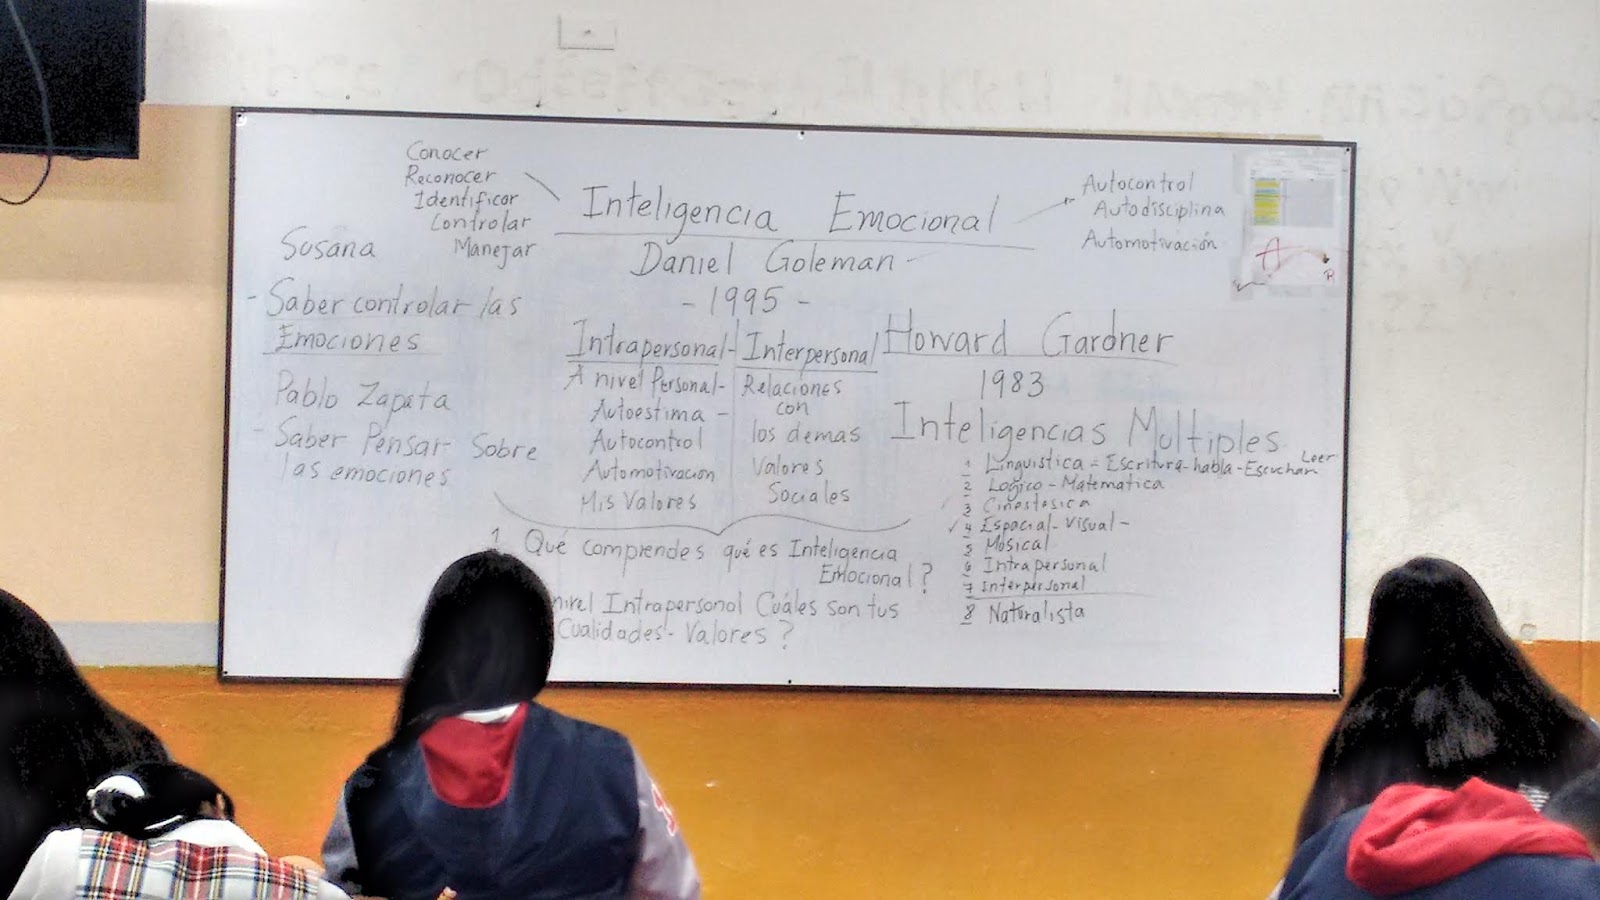 Conocer
Reconocer
Identificar
Controlar
Manejar
Inteligencia Emocional
Daniel Goleman -
- 1995 -
Autocontrol
Autodisciplina
Automotivación
Susana
- Saber controlar las
Emociones
Pablo Zapata
- Saber Pensar Sobre
las emociones
Intrapersonal -
A nivel Personal -
Autoestima -
Autocontrol
Automotivación
Mis Valores
Interpersonal
Relaciones
con
los demas
Valores
Sociales
Howard Gardner
1983
Inteligencias Multiples
Leer
1 Linguistica = Escritura - habla - Escuchan
2 Logico - Matematica
3 Cinestesica
4 Espacial - Visual -
5 Musical
6 Intrapersonal
7 Interpersonal
8 Naturalista
1 Qué comprendes qué es Inteligencia
Emocional ?
nivel Intrapersonal Cuáles son tus
Cualidades - Valores ?
A